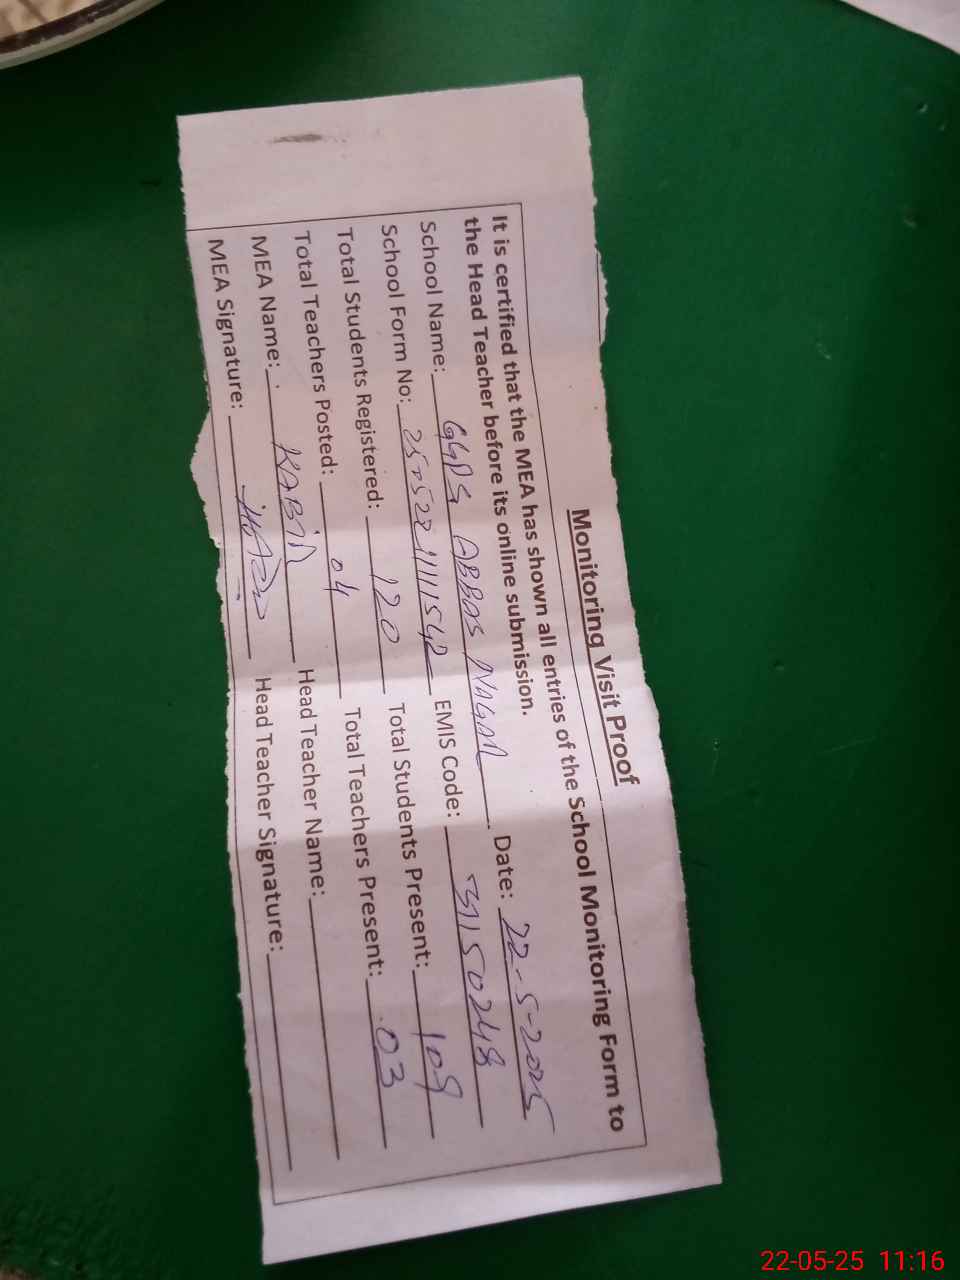 Monitoring Visit Proof
It is certified that the MEA has shown all entries of the School Monitoring Form to
the Head Teacher before its online submission.
School Name: GGPS ABBAS NAGAR Date: 22-5-2025
School Form No: EMIS Code: 31150248
Total Students Registered: 120 Total Students Present: 109
Total Teachers Posted: 04 Total Teachers Present: 03
MEA Name: KABIR Head Teacher Name:
MEA Signature: Head Teacher Signature:
22-05-25 11:16